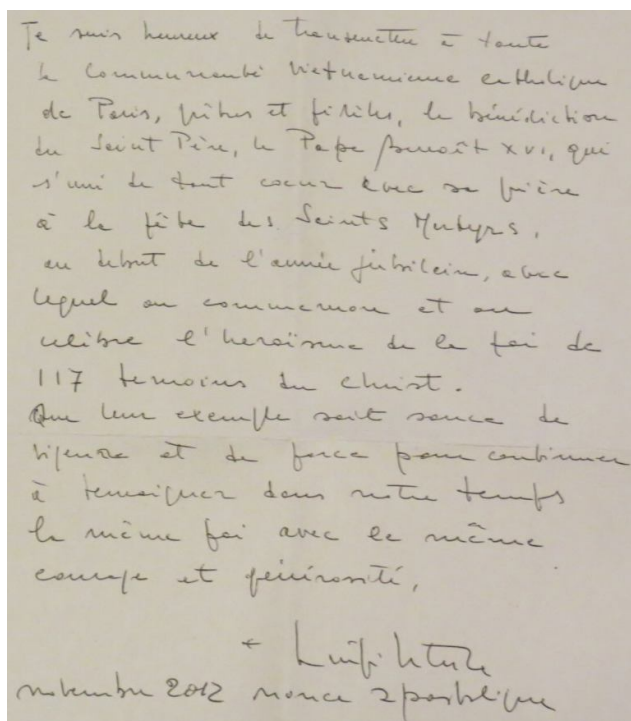 Je suis heureux de transmettre à toute
la Communauté Vietnamienne catholique
de Paris, prêtres et fidèles, la bénédiction
du Saint Père, le Pape Benoît XVI, qui
s'uni de tout coeur avec sa prière
à la fête des Saints Martyrs,
au debut de l'année jubilaire, avec
lequel on commemore et on
celèbre l'heroïsme de la foi de
117 temoins du Christ.
Que leur exemple soit source de
et de force pour continuer
à temoigner dans notre temps
la même foi avec le même
courage et générosité,
+ Luigi Ventura
novembre 2012 nonce apostolique